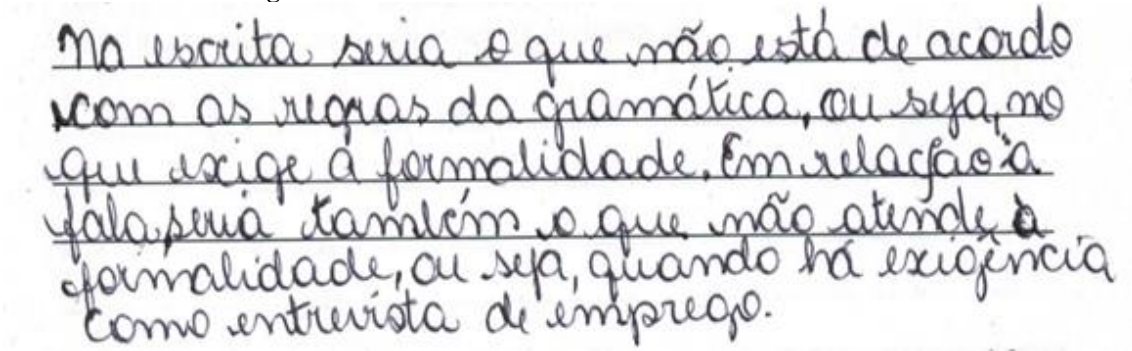 Na escrita seria o que não está de acordo
com as regras da gramática, ou seja, no
que exige a formalidade. Em relação à
fala seria também o que não atende à
formalidade, ou seja, quando há exigência
como entrevista de emprego.